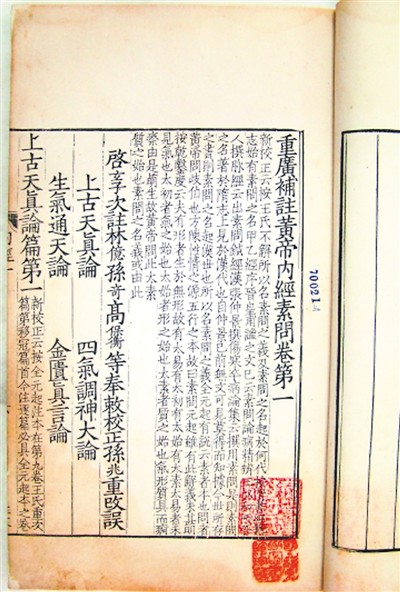 重廣補註黃帝內經素問卷第一
新校正云按王氏不解所以名素問之義及素問之名起於何代按隋書經籍
志始有素問之名甲乙經序晉皇甫謐之文已云素問論病精辨王叔和西晉
人撰脈經云出素問鍼經漢張仲景撰傷寒卒病論集云撰用素問是則素問
之名著於隋志上見於漢代也自仲景已前無文可見莫得而知據今世所存
之書則素問之名起漢世也所以名素問之義全元起有說云素者本也問者
黃帝問岐伯也方陳性情之源五行之本故曰素問元起雖有此解義未甚明
按乾鑿度云夫有形者生於無形故有太易有太初有太始有太素太易者未
見氣也太初者氣之始也太始者形之始也太素者質之始也氣形質具而痾
瘵由是萌生故黃帝問此太素
質之始也素問之名義或由此
啓玄子次註林億孫奇高保衡等奉敕校正孫兆重改誤
上古天真論 四氣調神大論
生氣通天論 金匱真言論
上古天真論篇第一
新校正云按全元起注本在第九卷王氏重次
篇第移冠篇首今注逐篇必具全元起本之卷